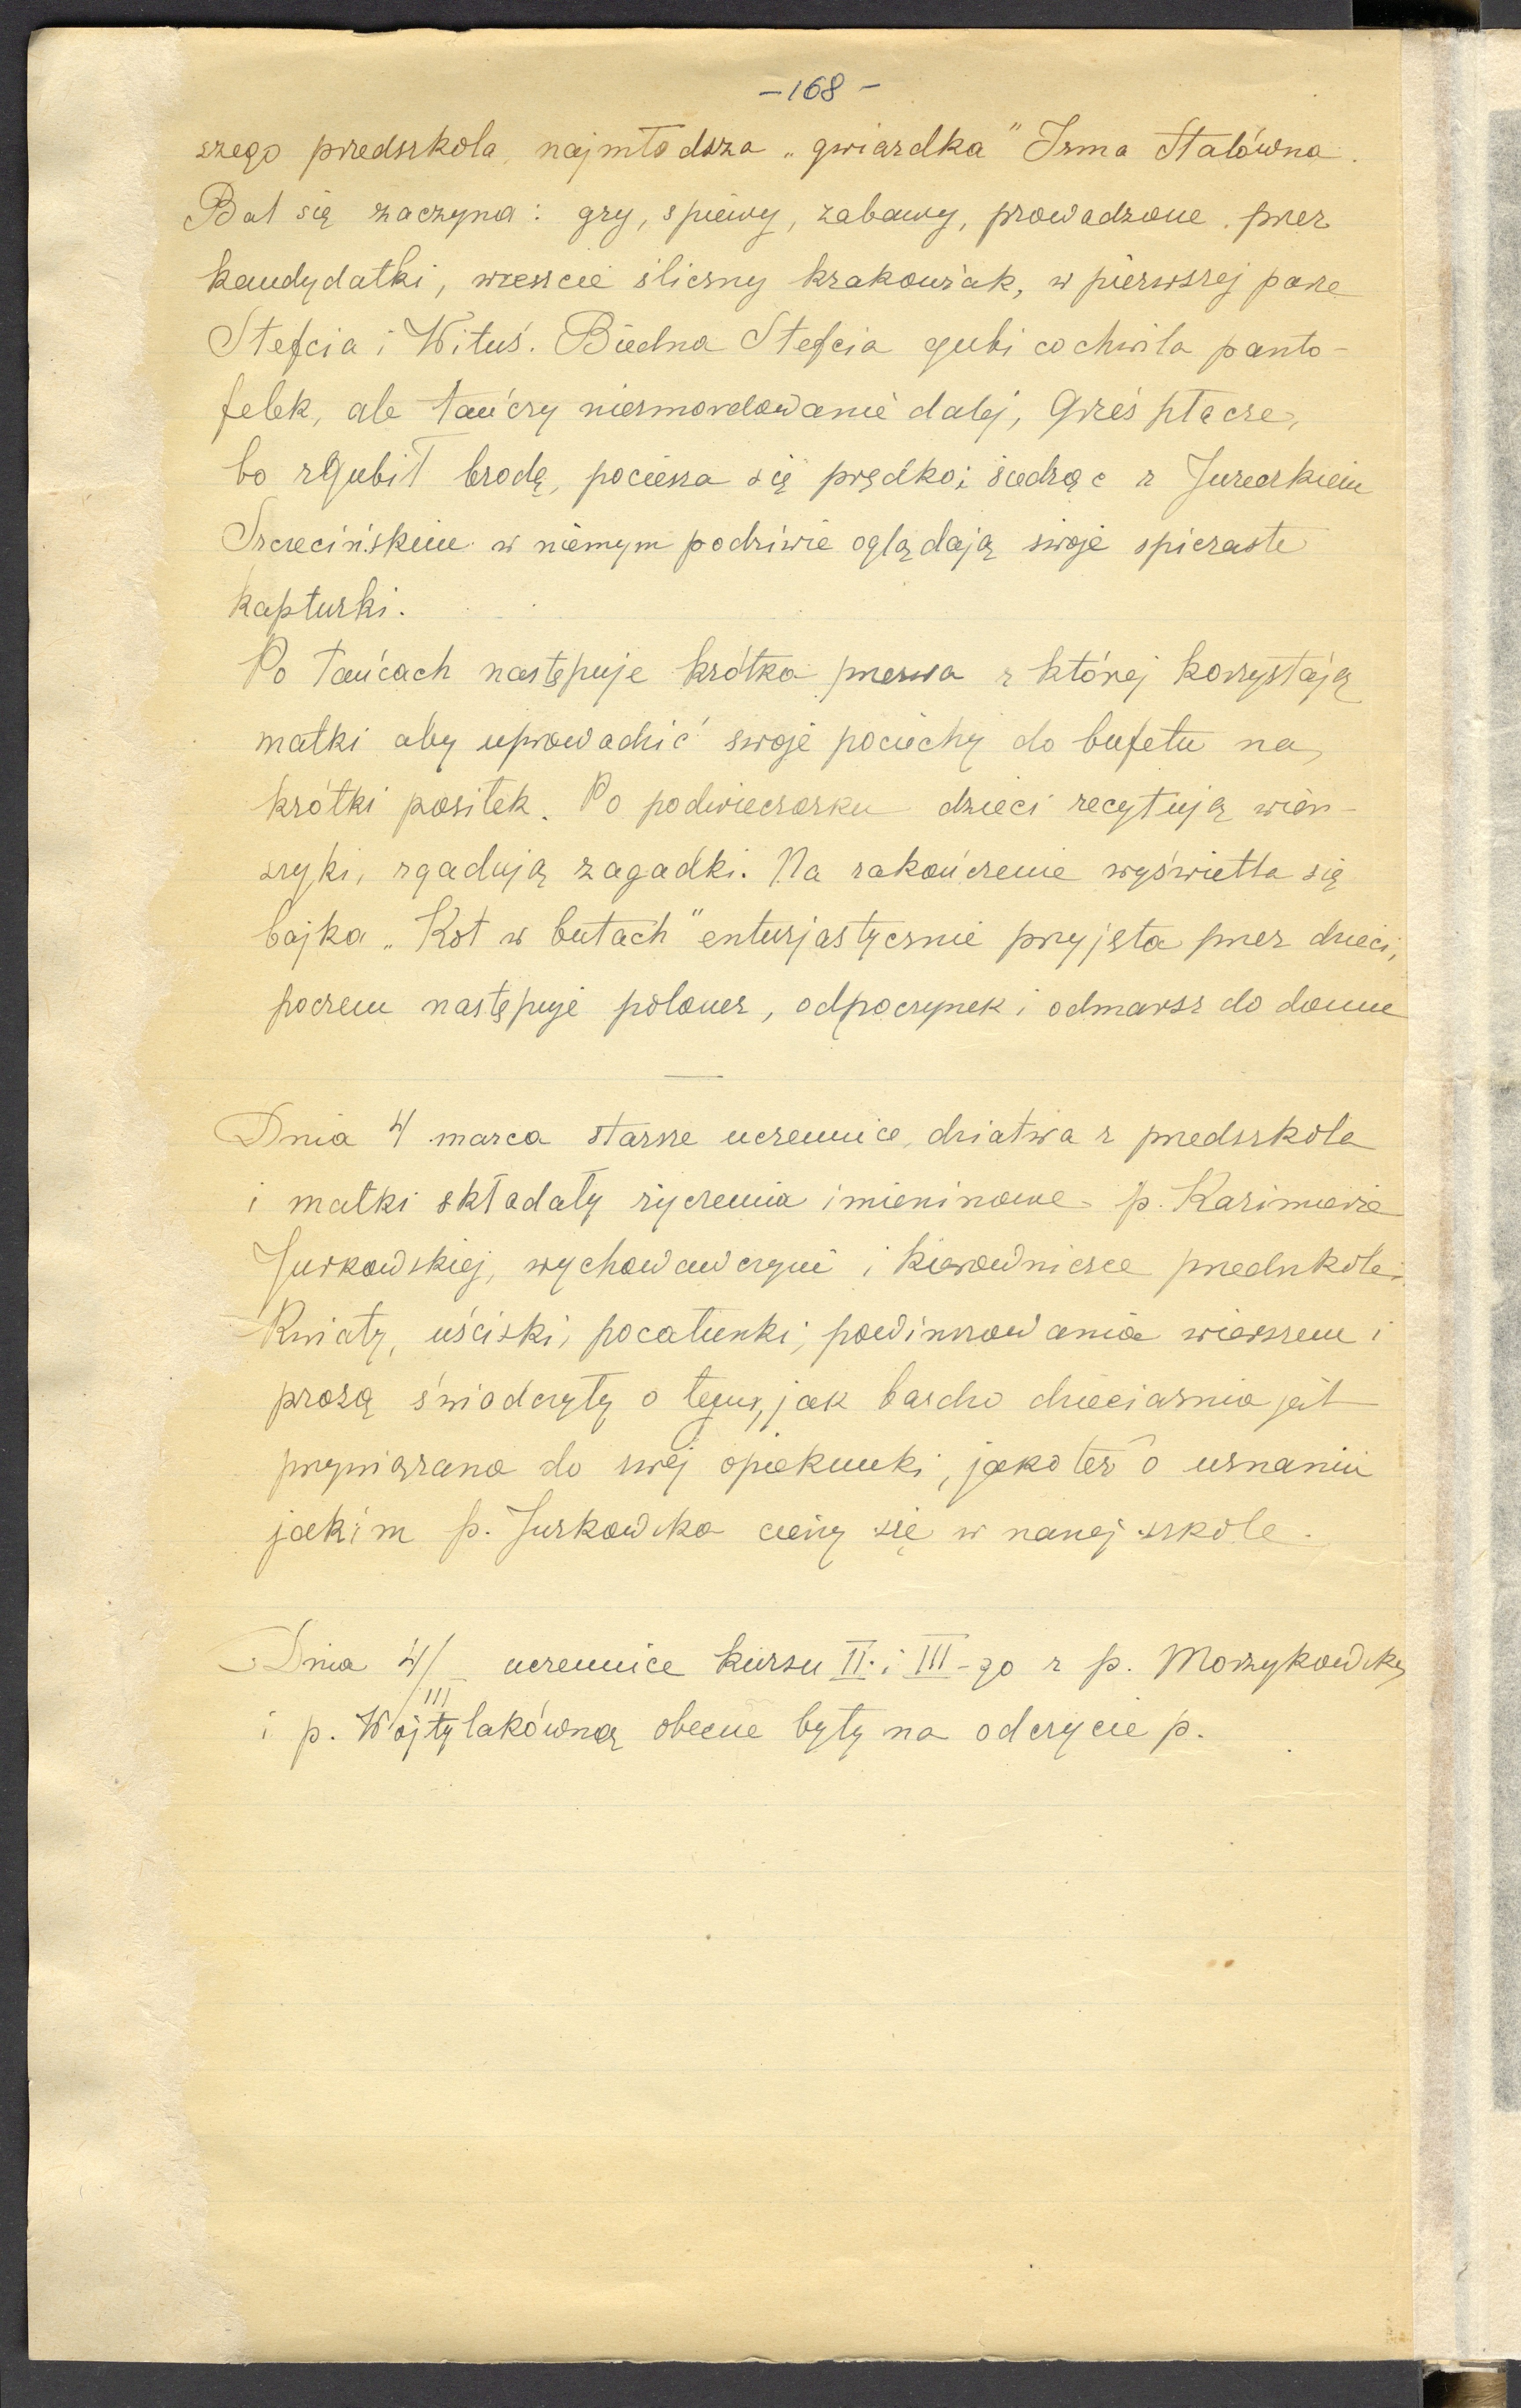 -168-
szego przedszkola, najmłodsza „gwiazdka" Irma Stalówna.
Bal się zaczyna: gry, śpiewy, zabawy, prowadzone przez
kandydatki, wreszcie śliczny krakowiak, w pierwszej parze
Stefcia i Wituś. Biedna Stefcia gubi co chwila panto-
felek, ale tańczy niezmordowanie dalej, Grześ płacze,
bo zgubił brodę, pociesza się prędko i siedząc z Jureczkiem
Szczecińskim w niemym podziwie oglądają swoje spiczaste
kapturki.
Po tańcach następuje krótka przerwa z której korzystają
matki aby uprowadzić swoje pociechy do bufetu na
krótki posiłek. Po podwieczorku dzieci recytują wier-
szyki, zgadują zagadki. Na zakończenie wyświetla się
bajka „Kot w butach" enturjastycznie przyjęta przez dzieci,
poczem następuje polonez, odpoczynek i odmarsz do domu
Dnia 4 marca starsze uczennice, dziatwa z przedszkola
i matki składały życzenia imieninowe p. Kazimierze
Jurkowskiej, wychowawczyni i kierowniczce przedszkola.
Kwiaty, uściski, pocałunki, powinszowania wierszem i
prozą świadczyły o tem, jak bardzo dzieciarnia jest
przywiązana do swej opiekunki, jakoteż o uznaniu
jakim p. Jurkowska cieszy się w naszej szkole.
Dnia 4/III uczennice kursu II i III-go z p. Morzykowską
i p. Wojtylakówną obecne były na odczycie p.